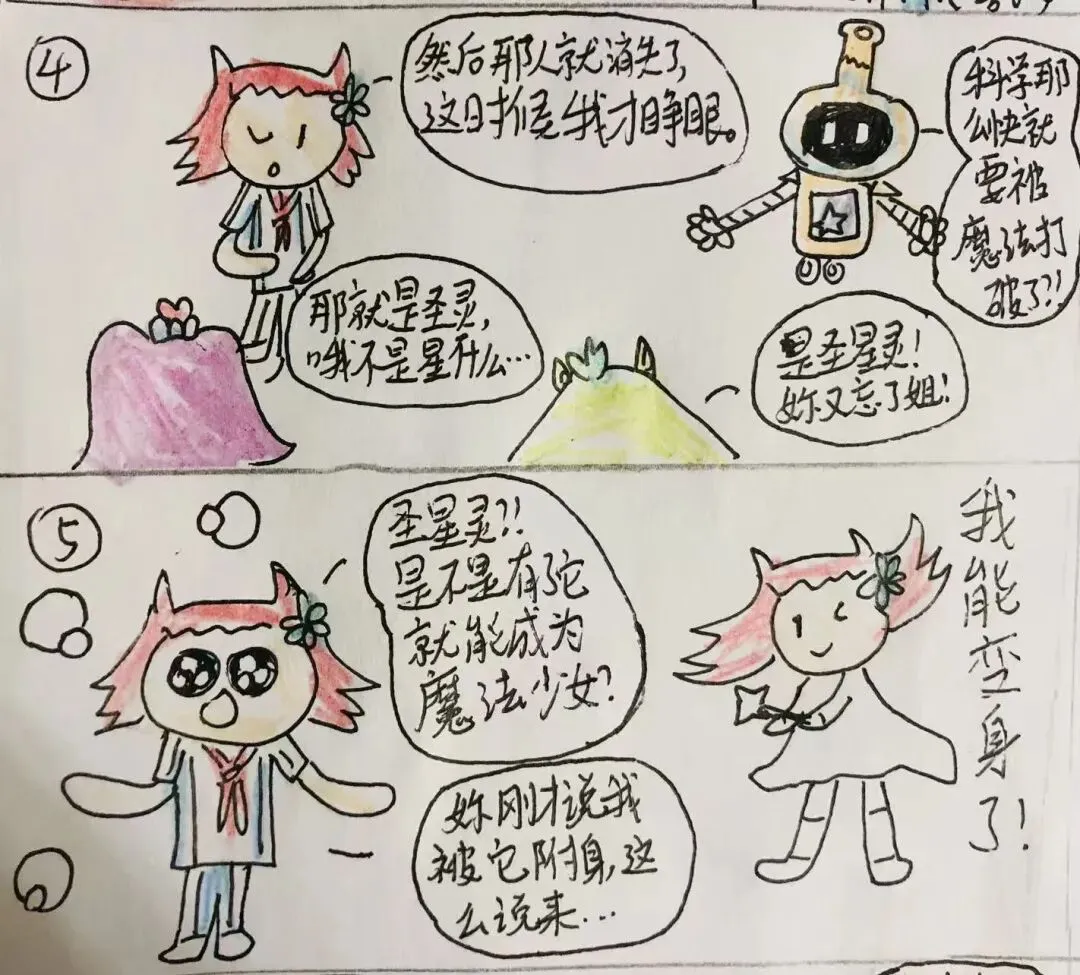 ④
然后那人就消失了,
这时候我才睁眼。
科学那
么快就
要被
魔法打
破了?!
那就是圣灵,
哦不是星什么…
是圣星灵!
妳又忘了姐!
⑤
圣星灵?!
是不是有它
就能成为
魔法少女?
妳刚才说我
被它附身,这
么说来…
我能变身了!